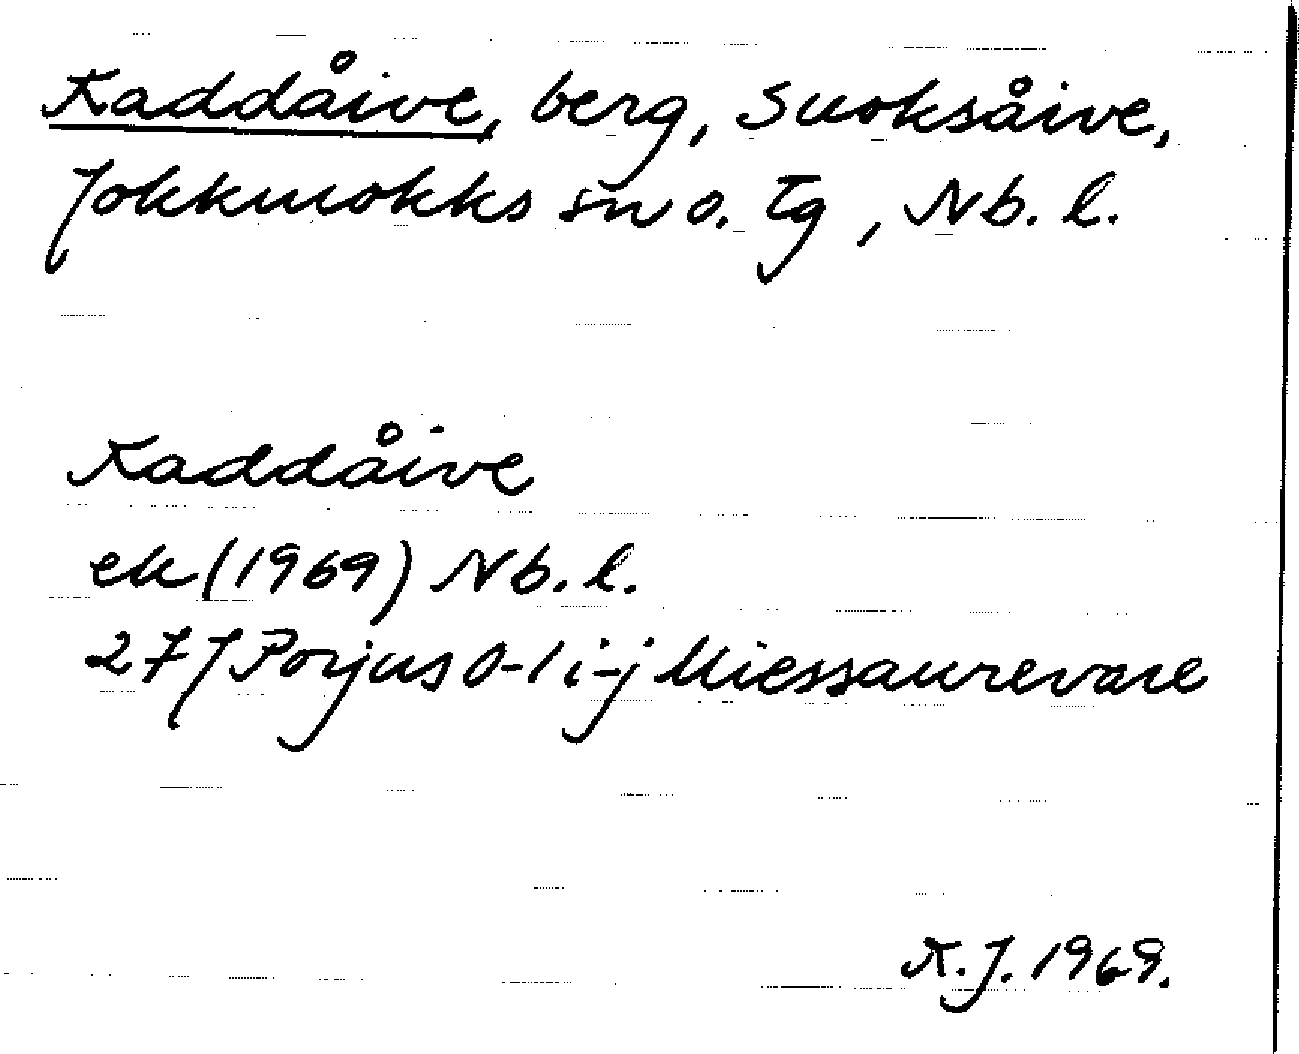 Kaddåive, berg, Suoksåive,
Jokkmokks sn o. tg, Nb. l.
Kaddåive
ek (1969) Nb. l.
27 J Porjus 0-1 i-j Miessaurevare
K.J. 1969.